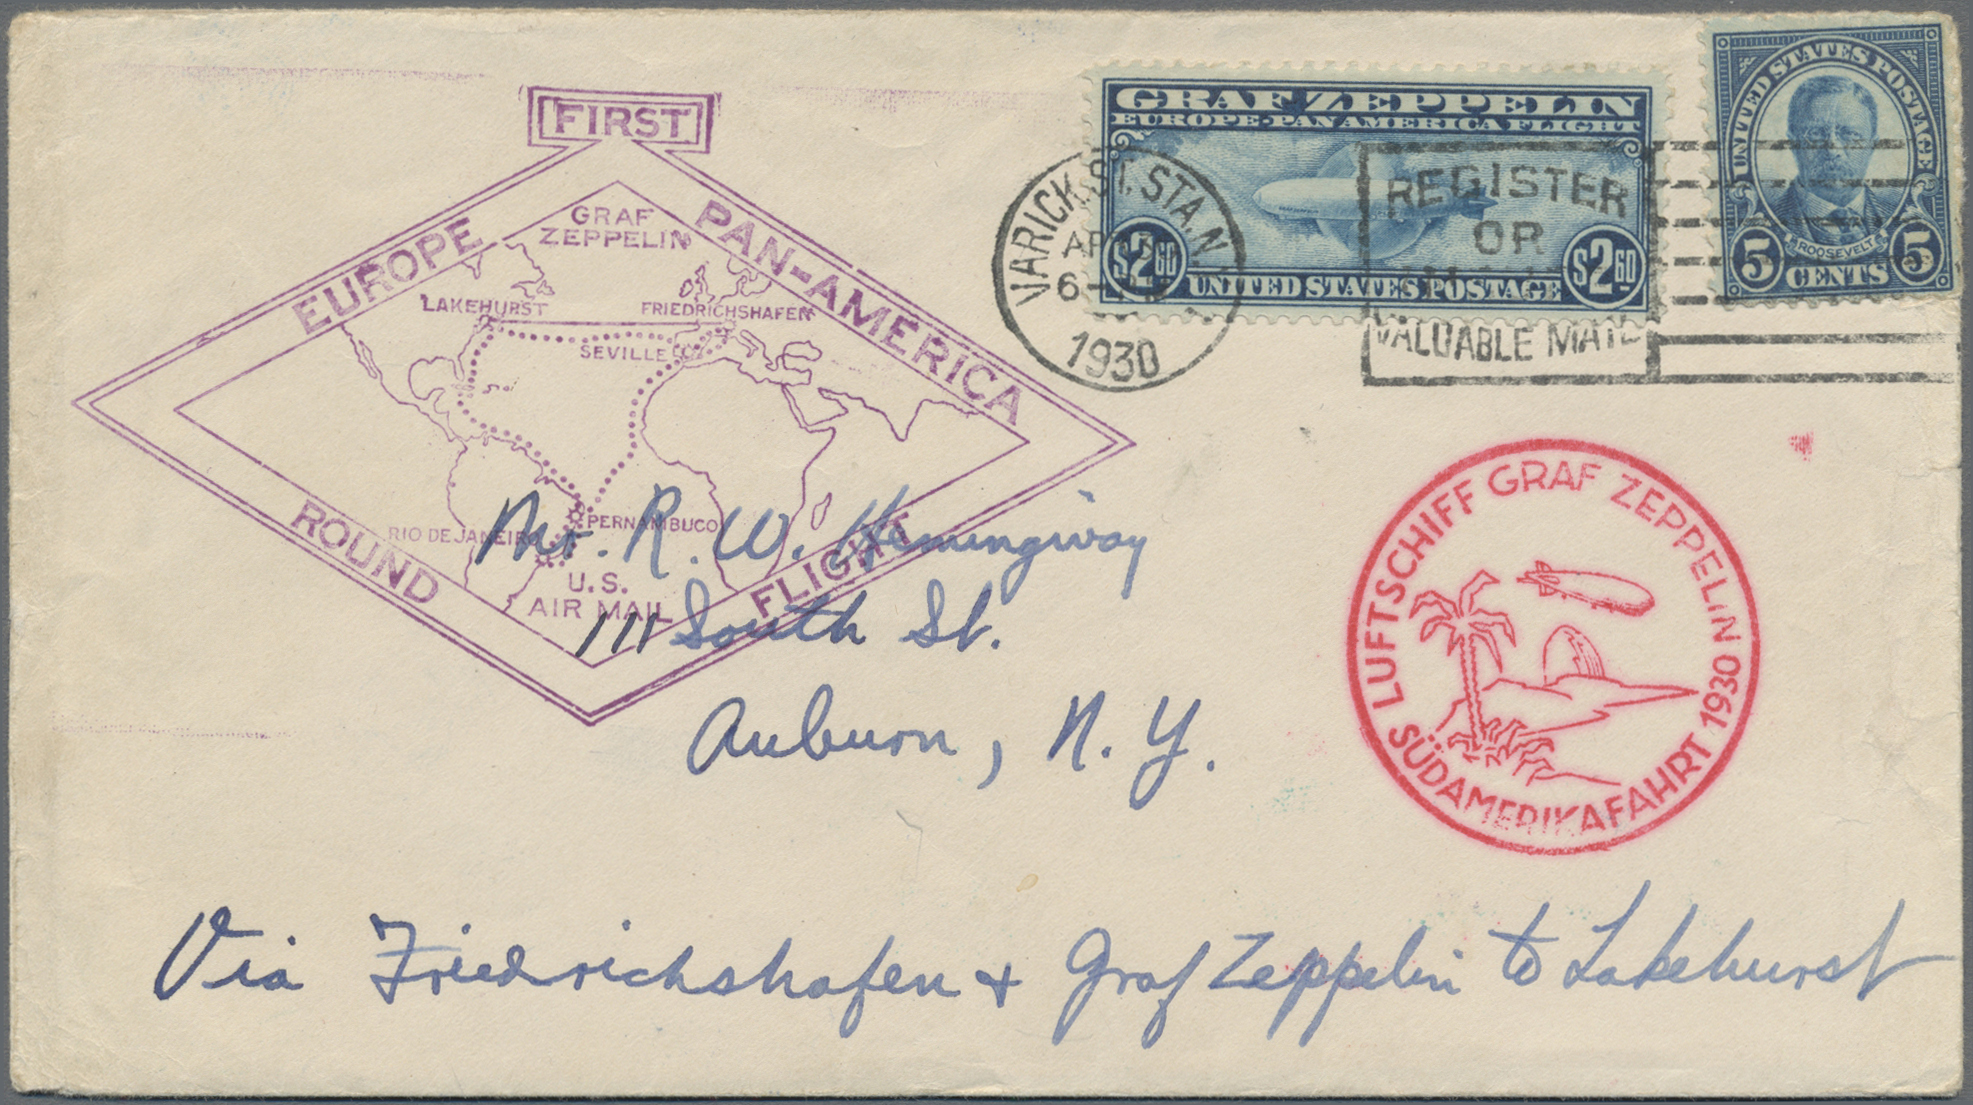 FIRST
EUROPE PAN-AMERICA
GRAF
ZEPPELIN
LAKEHURST
FRIEDRICHSHAFEN
SEVILLE
RIO DE JANEIRO
PERNAMBUCO
U.S.
AIR MAIL
ROUND FLIGHT
GRAF ZEPPELIN
EUROPE-PAN AMERICA FLIGHT
$2.60 $2.60
UNITED STATES POSTAGE
UNITED STATES POSTAGE
ROOSEVELT
5 CENTS 5
VARICK ST. STA. N.
1930
REGISTER
OR
VALUABLE MAIL
Mr. R. W. Hemingway
111 South St.
Auburn, N. Y.
LUFTSCHIFF GRAF ZEPPELIN 1930
SÜDAMERIKAFAHRT
Via Friedrichshafen + Graf Zeppelin to Lakehurst